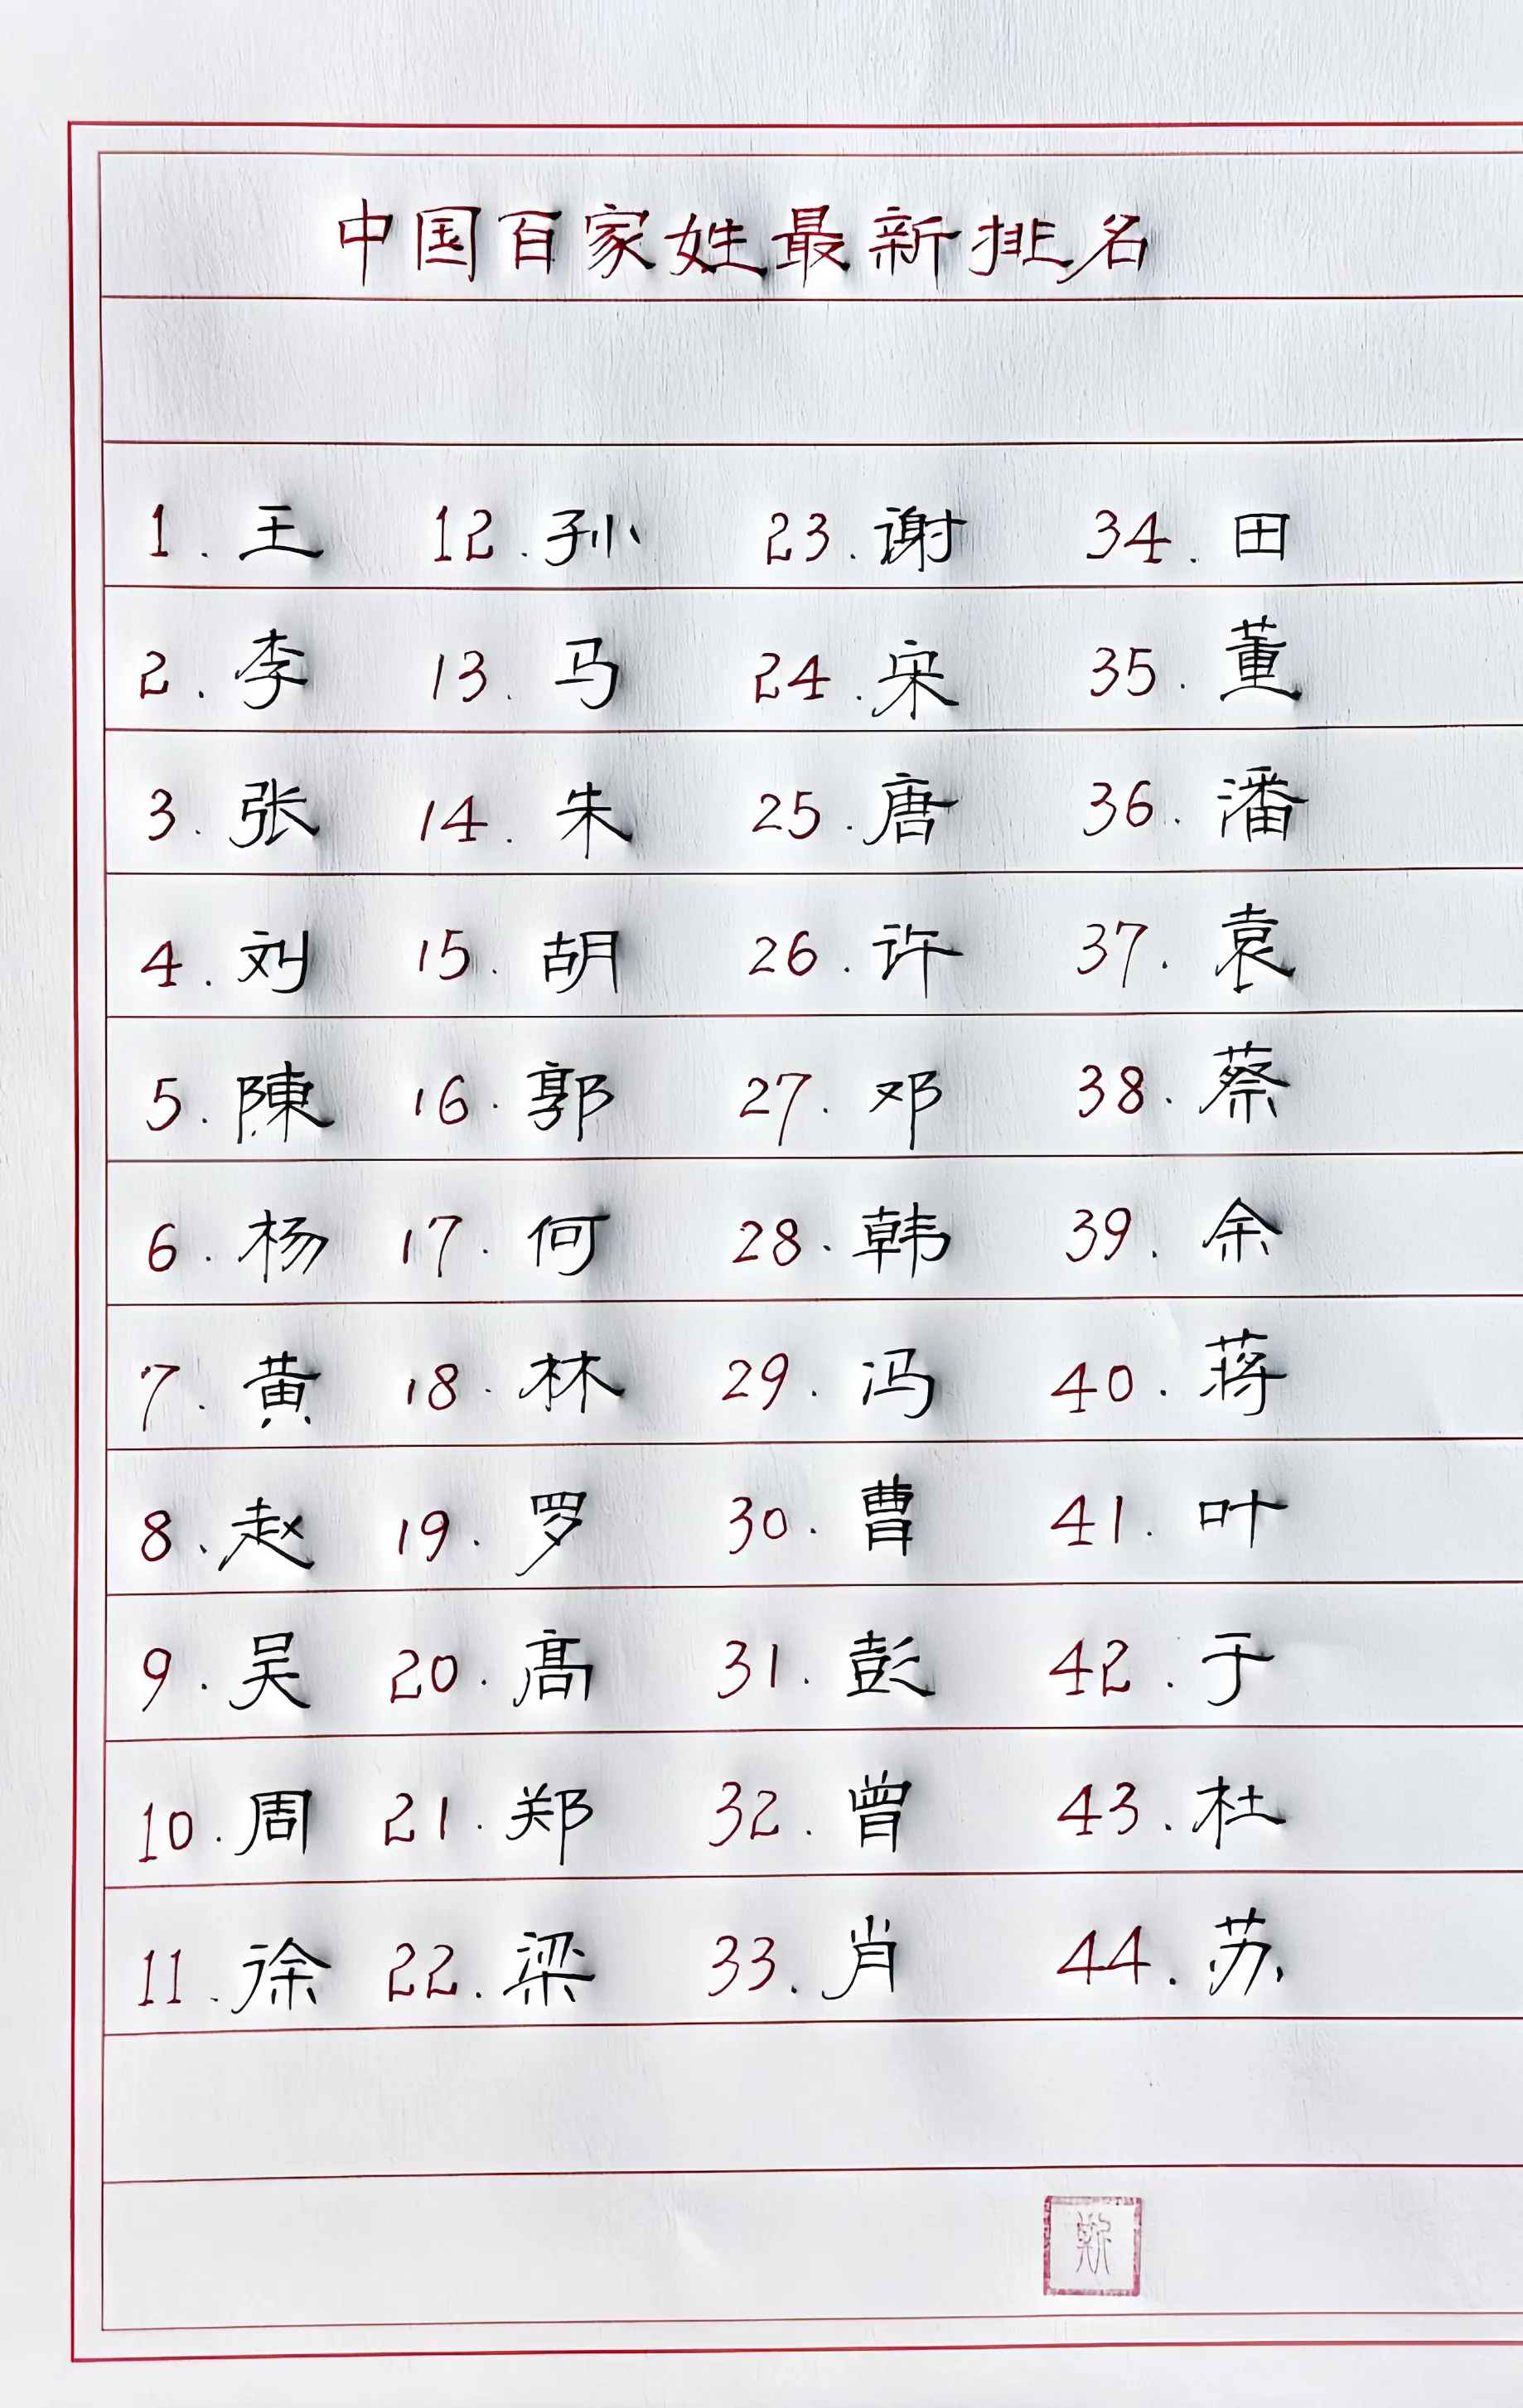 中国百家姓最新排名
1.王 12.孙 23.谢 34.田
2.李 13.马 24.宋 35.董
3.张 14.朱 25.唐 36.潘
4.刘 15.胡 26.许 37.袁
5.陳 16.郭 27.邓 38.蔡
6.杨 17.何 28.韩 39.余
7.黄 18.林 29.冯 40.蒋
8.赵 19.罗 30.曹 41.叶
9.吴 20.髙 31.彭 42.于
10.周 21.郑 32.曾 43.杜
11.徐 22.梁 33.肖 44.苏